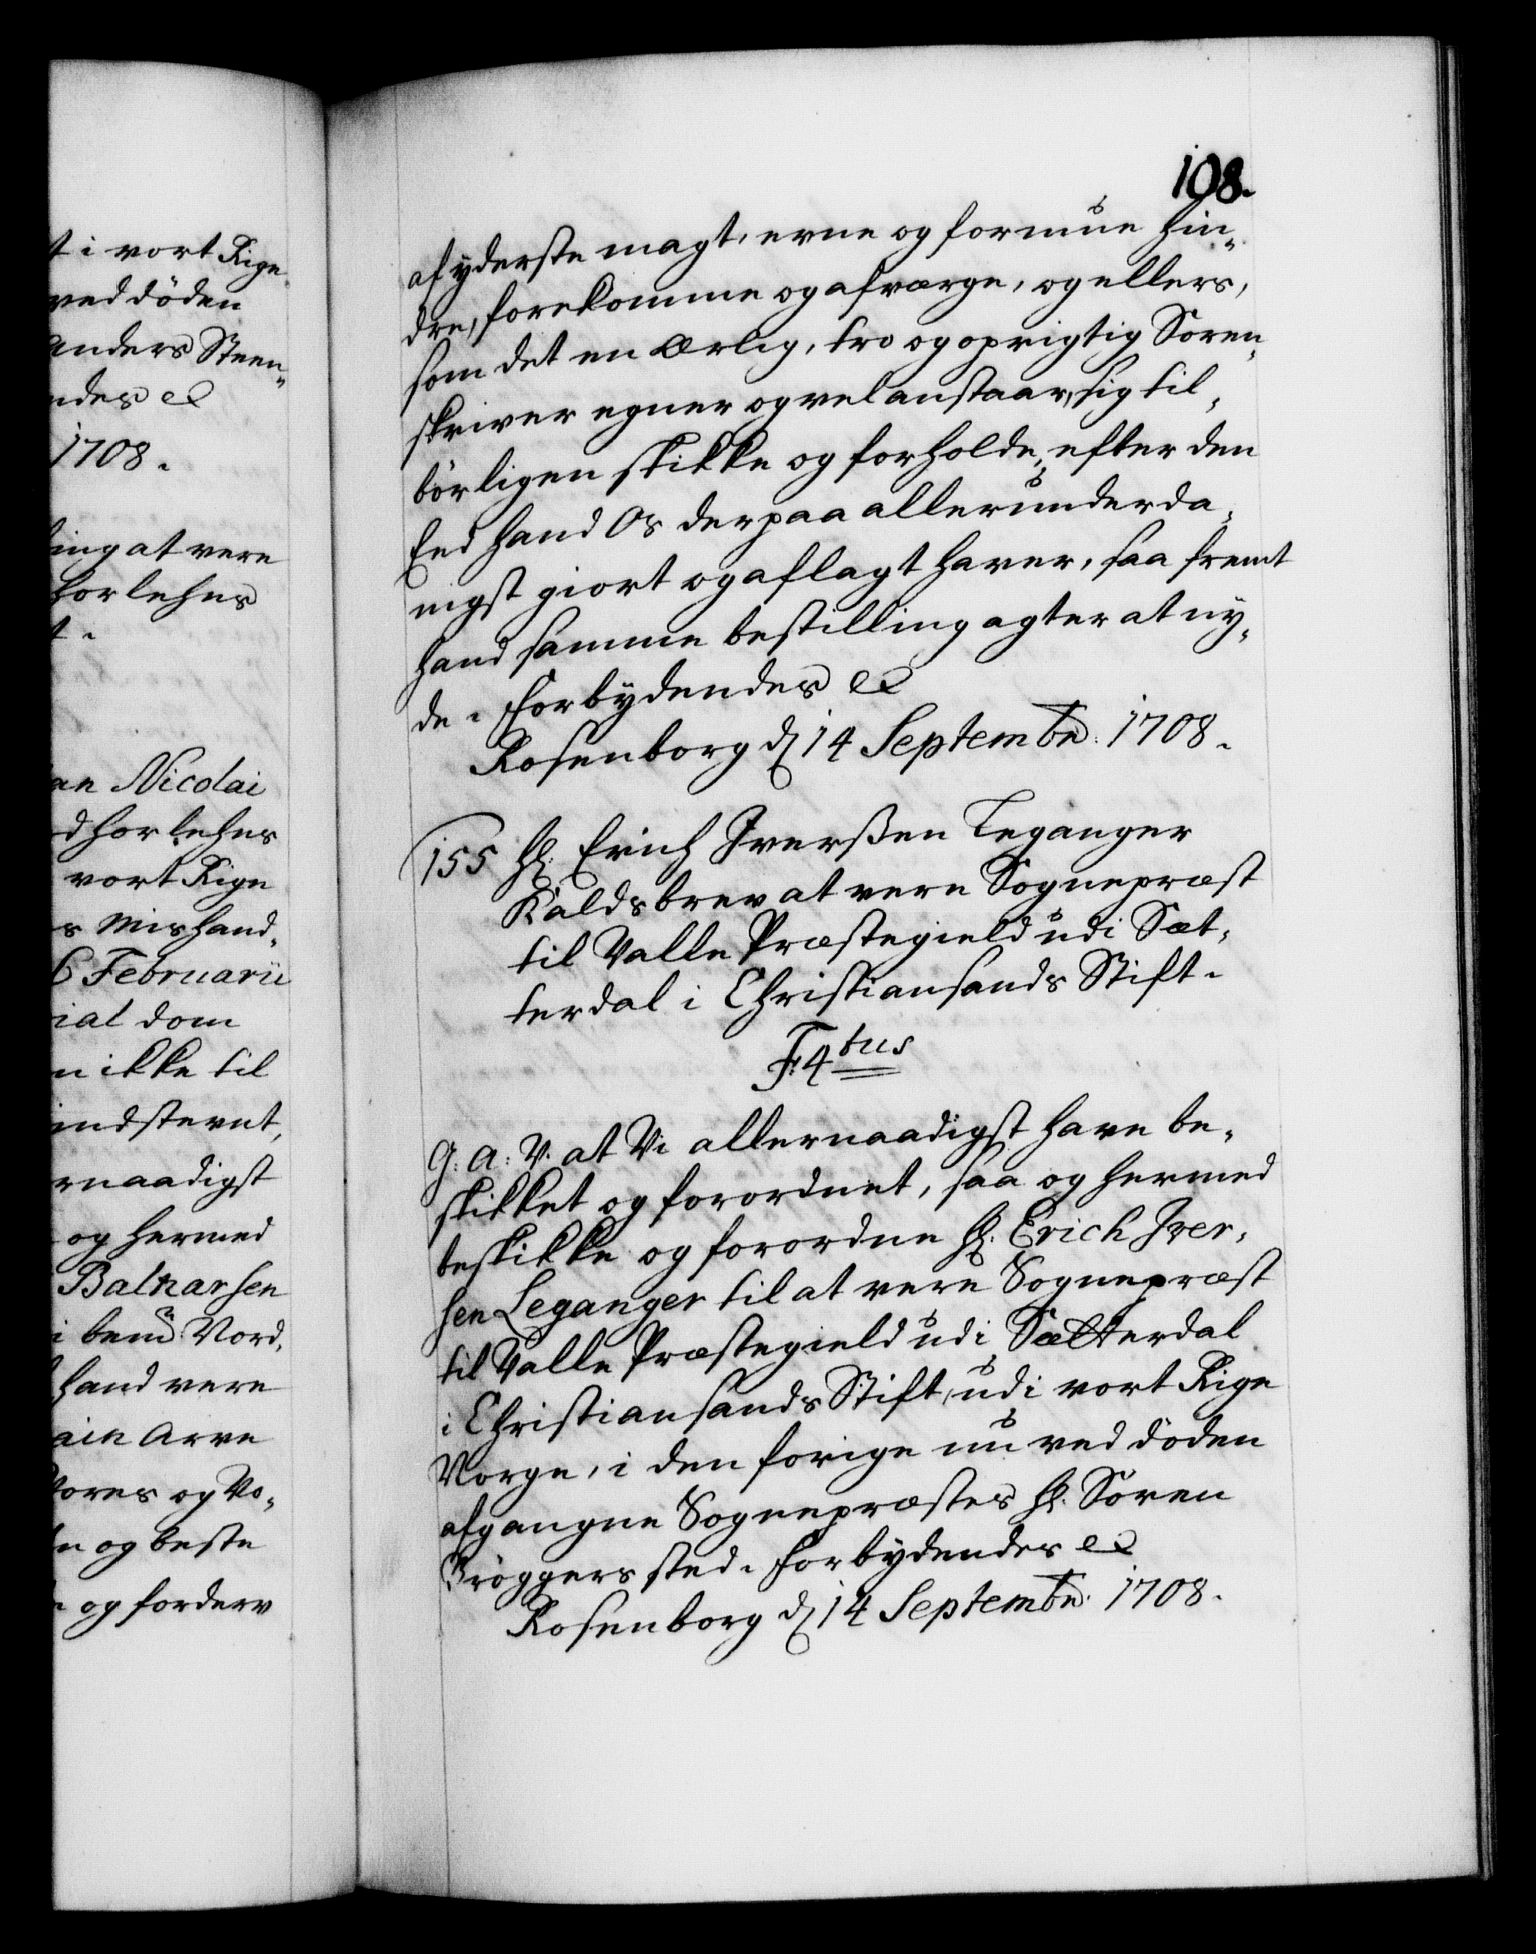 t i vort Rige
ved döden
Anders Steen„
ndes &
1708.
ling at vere
for lehns
t.
an Nicolai
d for lehns
vort Rige
s Mishand„
6 Februarii
ial dom
n ikke til
indstevnt,
rnaadigst
og hermed
Baltzarsen
i bem̃ Nord„
hand vere
ain Arve
Vores og Vo„
n og beste
og forderv
198.
af yderste magt, evne og formue hin„
dre, forekomme og afværge, og ellers,
som det en Ærlig, tro og oprigtig Soren„
skriver egner og vel anstaar, sig til„
börligen skikke og forholde, efter den
Eed hand Os derpaa allerunderda„
nigst giort og aflagt haver, saa fremt
hand samme bestilling agter at ny„
de. Forbydendes &
Rosenborg d 14 Septembr: 1708.
155 Hr. Erich Iverssen Leganger
Kaldsbrev at vere Sognepræst
til Valle Præstegield udi Sæt„
terdal i Christiansands Stift.
F: 4tus
G: A: V. at Vi allernaadigst have be„
skikket og forordnet, saa og hermed
beskikke og forordne Hr. Erich Iver„
sen Leganger til at vere Sognepræst
til Valle Præstegield udi Sætterdal
i Christiansands Stift, udi vort Rige
Norge, i den forige nu ved döden
afgangne Sognepræstes Hr. Sören
Bröggers sted. Forbydendes &
Rosenborg d 14 Septembr: 1708.